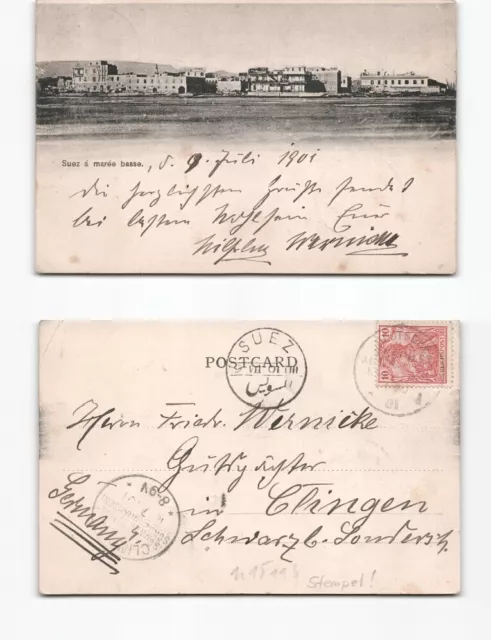 Suez á marée basse. , d. 9. Juli 1901
Die herzlichsten Grüße sendet
bei bestem Wohlsein Euer
Wilhelm Wernicke
SUEZ
POSTCARD
السويس
10
10
Herrn Friedr. Wernicke
Gutspächter
in Clingen
Germany
Schwarzb. Sondersh.
8-9V
CLINGEN
Stempel!